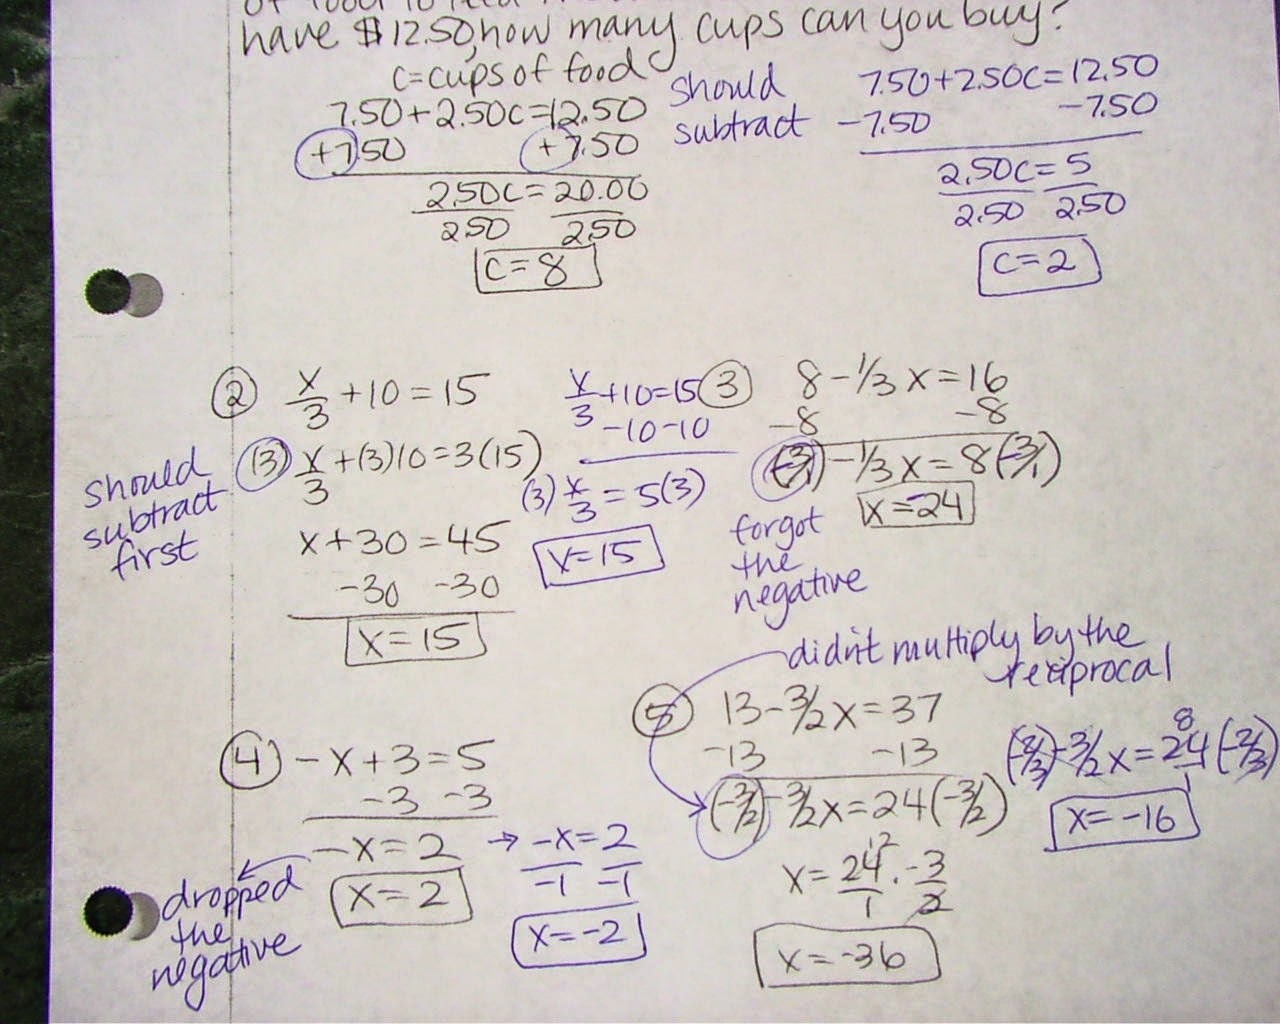 have $12.50, how many cups can you buy?
c=cups of food
7.50+2.50c=12.50
+7.50 +7.50
2.50c=20.00
2.50 2.50
c=8
should
subtract
7.50+2.50c=12.50
-7.50 -7.50
2.50c=5
2.50 2.50
c=2
② x/3 +10=15
(3) x/3 +(3)10=3(15)
x+30=45
-30 -30
x=15
should
subtract
first
x/3 +10=15
-10-10
(3) x/3 = 5(3)
x=15
③ 8-1/3 x=16
-8 -8
(-3/1) -1/3 x=8(-3/1)
x=-24
forgot
the
negative
④ -x+3=5
-3 -3
-x=2
x=2
dropped
the
negative
→ -x=2
-1 -1
x=-2
didn't multiply by the
reciprocal
⑤ 13-3/2x=37
-13 -13
(-3/2)-3/2x=24(-3/2)
x=24/1 12 · -3/2
x=-36
8
(-2/3)-3/2x=24(-2/3)
1
x=-16